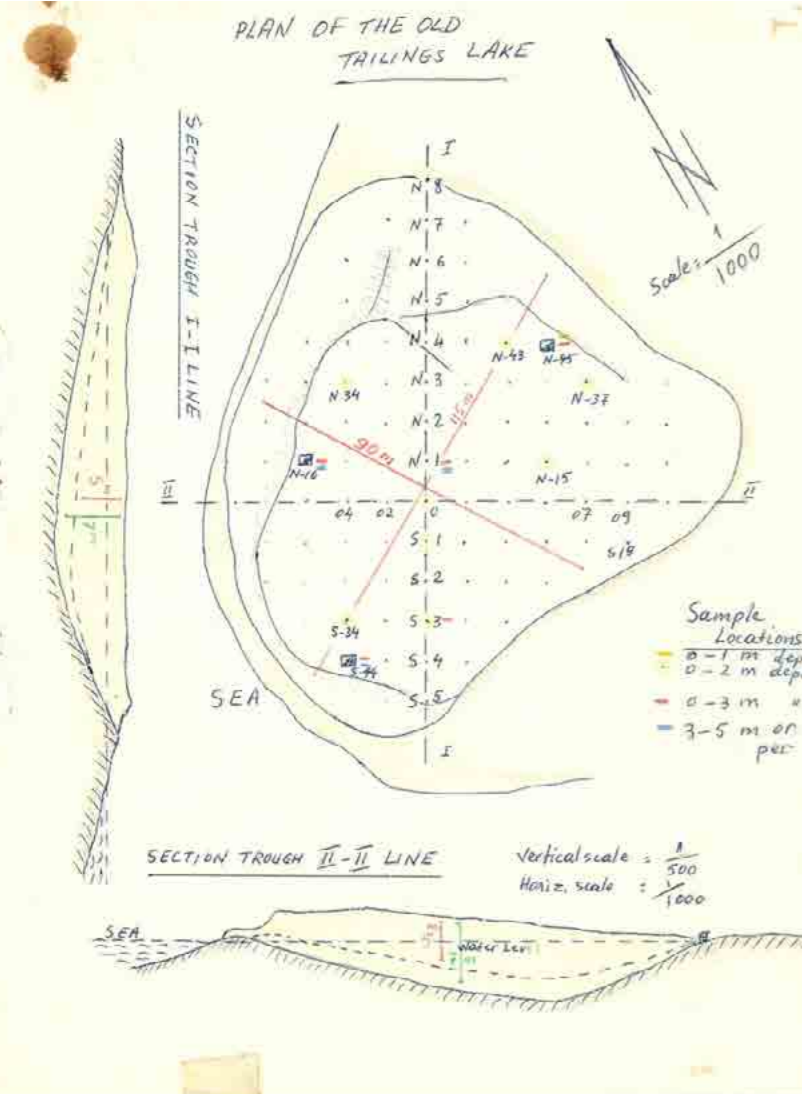 PLAN OF THE OLD
TAILINGS LAKE
SECTION TROUGH I-I LINE
Scale = 1/1000
I
N 8
N 7
N 6
N 5
N 4
N-43
N-45
N-34
N 3
N-37
N 2
115 m
90 m
N 1
N-16
N-15
II
II
04 02 0 07 09
S 1
S 19
S 2
S-34
S 3
S-44
S 4
S 5
SEA
I
5 m
7 m
Sample
Locations
0-1 m dep
0-2 m dep
0-3 m "
3-5 m or
per
SECTION TROUGH II-II LINE
Vertical scale = 1/500
Horiz. scale : 1/1000
SEA
5 m
Water Level
7 m